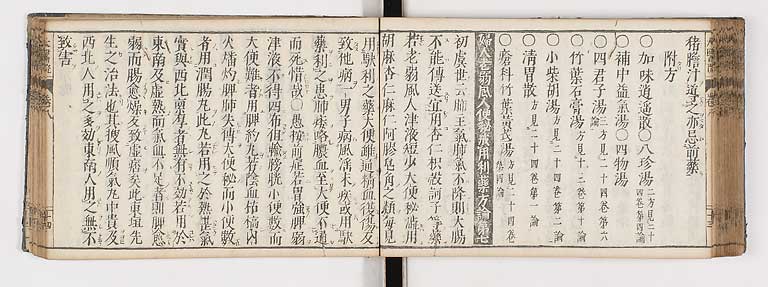 猪膽汁道之亦忌前藥
附方
○加味逍遙散○八珍湯 二方見二十四卷第四論
○補中益氣湯○四物湯
○四君子湯 三方見二十四卷第 論
○竹葉石膏湯 方見二十三卷第一論
○小柴胡湯 方見二十四卷第二論
○清胃散 方見二十四卷第一論
竹葉黃芪湯 方見二十四卷第四論
婦人老弱風人大便秘澁用利藥方論第七
初虞世云肺主氣肺氣不降則大腸
不能傳送宜用杏仁枳殼訶子等藥
若老弱風人津液短少大便秘澁用
胡麻杏仁麻仁阿膠皂角之類每見
用駃利之藥大便雖通精血復傷反
致他病一男子病風 疾或用駃
藥利之患肺痿咯膿血至大便不通
而死惜哉○愚按前症若胃強脾弱
津液不得四布但輸膀胱小便數而
大便難者用脾約丸若陰血枯槁內
火燔灼脾肺失傳大便秘而小便數
者用潤腸丸此丸若用之於熱甚氣
實與西北稟厚者無有不効若用於
東南及虛熱而氣血不足者則脾愈
弱而腸愈燥反致虛痞矣此東垣先
生之治法也其搜風順氣丸中貴及
西北人用之多効東南人用之無不
致害